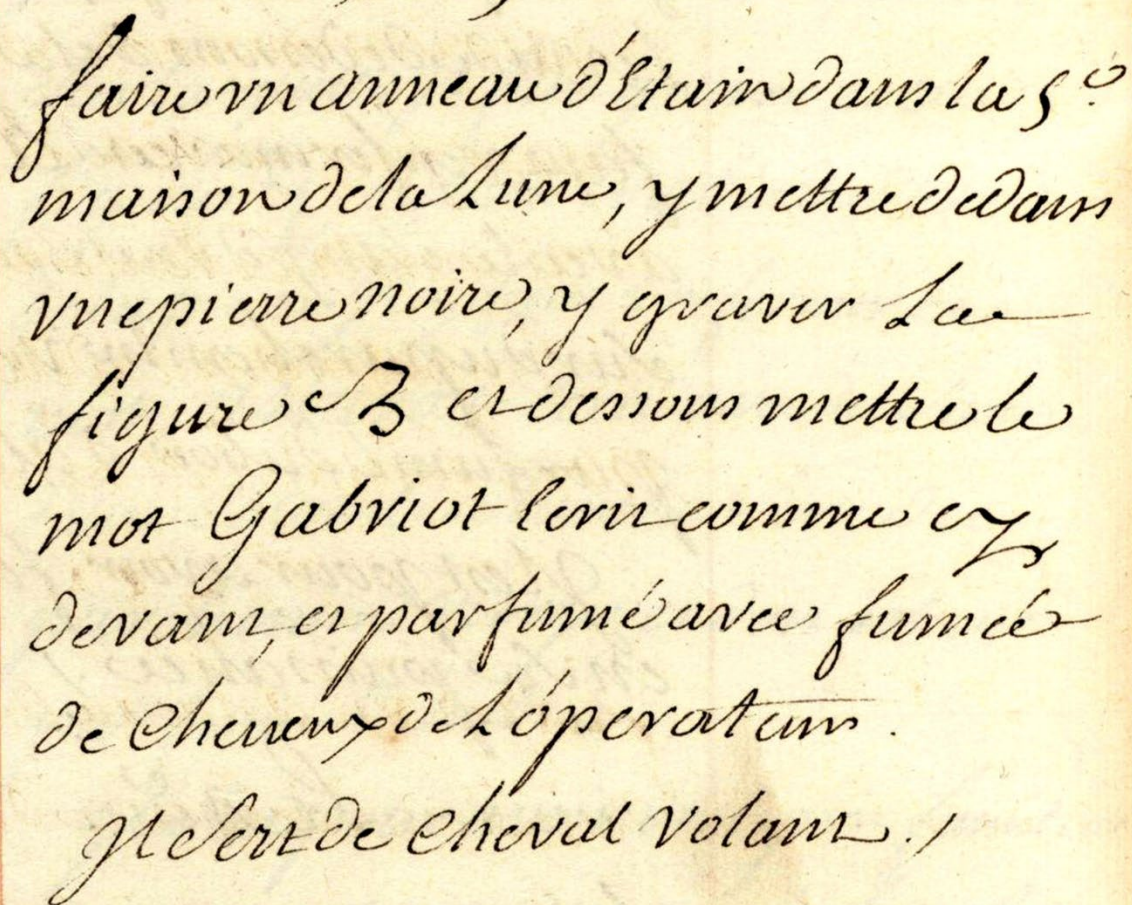 faire vn anneau d'Etain dans la 5.e
maison de la Lune, y mettre dedans
vne pierre noire, y graver La
figure 3 et dessous mettre le
mot Gabriot Ecrit comme cy
devant, et parfumé avec fumée
de Cheueux de L'óperateur.
Jl Sert de Cheval volant./